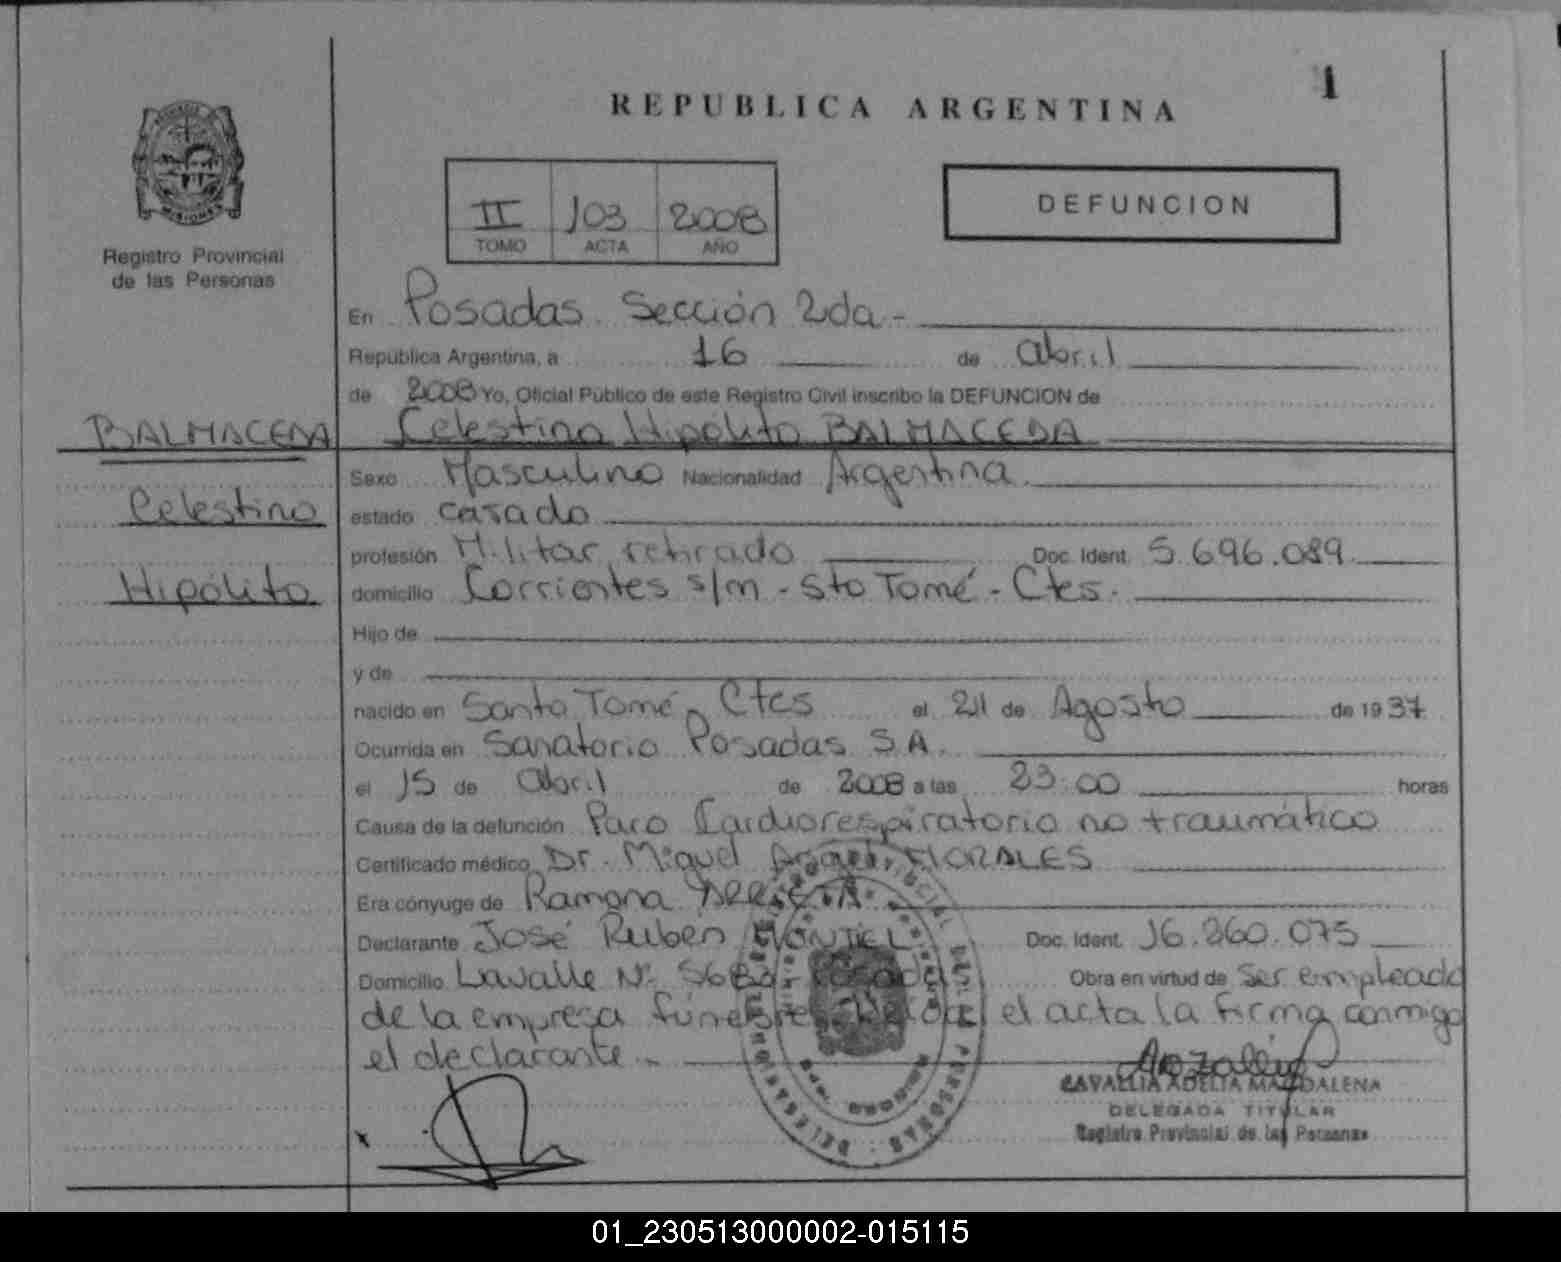 1
REPUBLICA ARGENTINA
MISIONES
Registro Provincial
de las Personas
II 103 2008
TOMO ACTA AÑO
DEFUNCION
En Posadas Sección 2da -
República Argentina, a 16 de abril
de 2008 Yo, Oficial Público de este Registro Civil inscribo la DEFUNCION de
BALMACEDA Celestino Hipólito BALMACEDA
Sexo Masculino Nacionalidad Argentina
Celestino estado casado
profesión Militar retirado Doc. Ident. 5.696.089
Hipólito domicilio Corrientes s/m - Sto Tomé - Ctes.
Hijo de
y de
nacido en Santo Tomé - Ctes el 21 de Agosto de 1937
Ocurrida en Sanatorio Posadas S.A.
el 15 de abril de 2008 a las 23:00 horas
Causa de la defunción Paro Cardiorespiratorio no traumático
Certificado médico Dr. Miguel Angel MORALES
Era cónyuge de Ramona
Declarante José Ruben MONTIEL Doc. Ident. 16.260.075
Domicilio Lavalle Nº Posadas Obra en virtud de ser empleado
de la empresa fúnebre el acta la firma conmigo
el declarante.-
CAVALLIA ADELIA MAGDALENA
DELEGADA TITULAR
Registro Provincial de las Personas
01_230513000002-015115